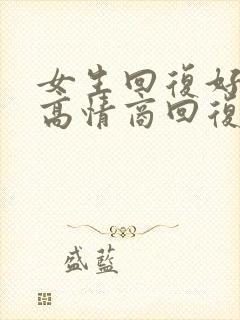 女生回復好
高情商回復
盛藍